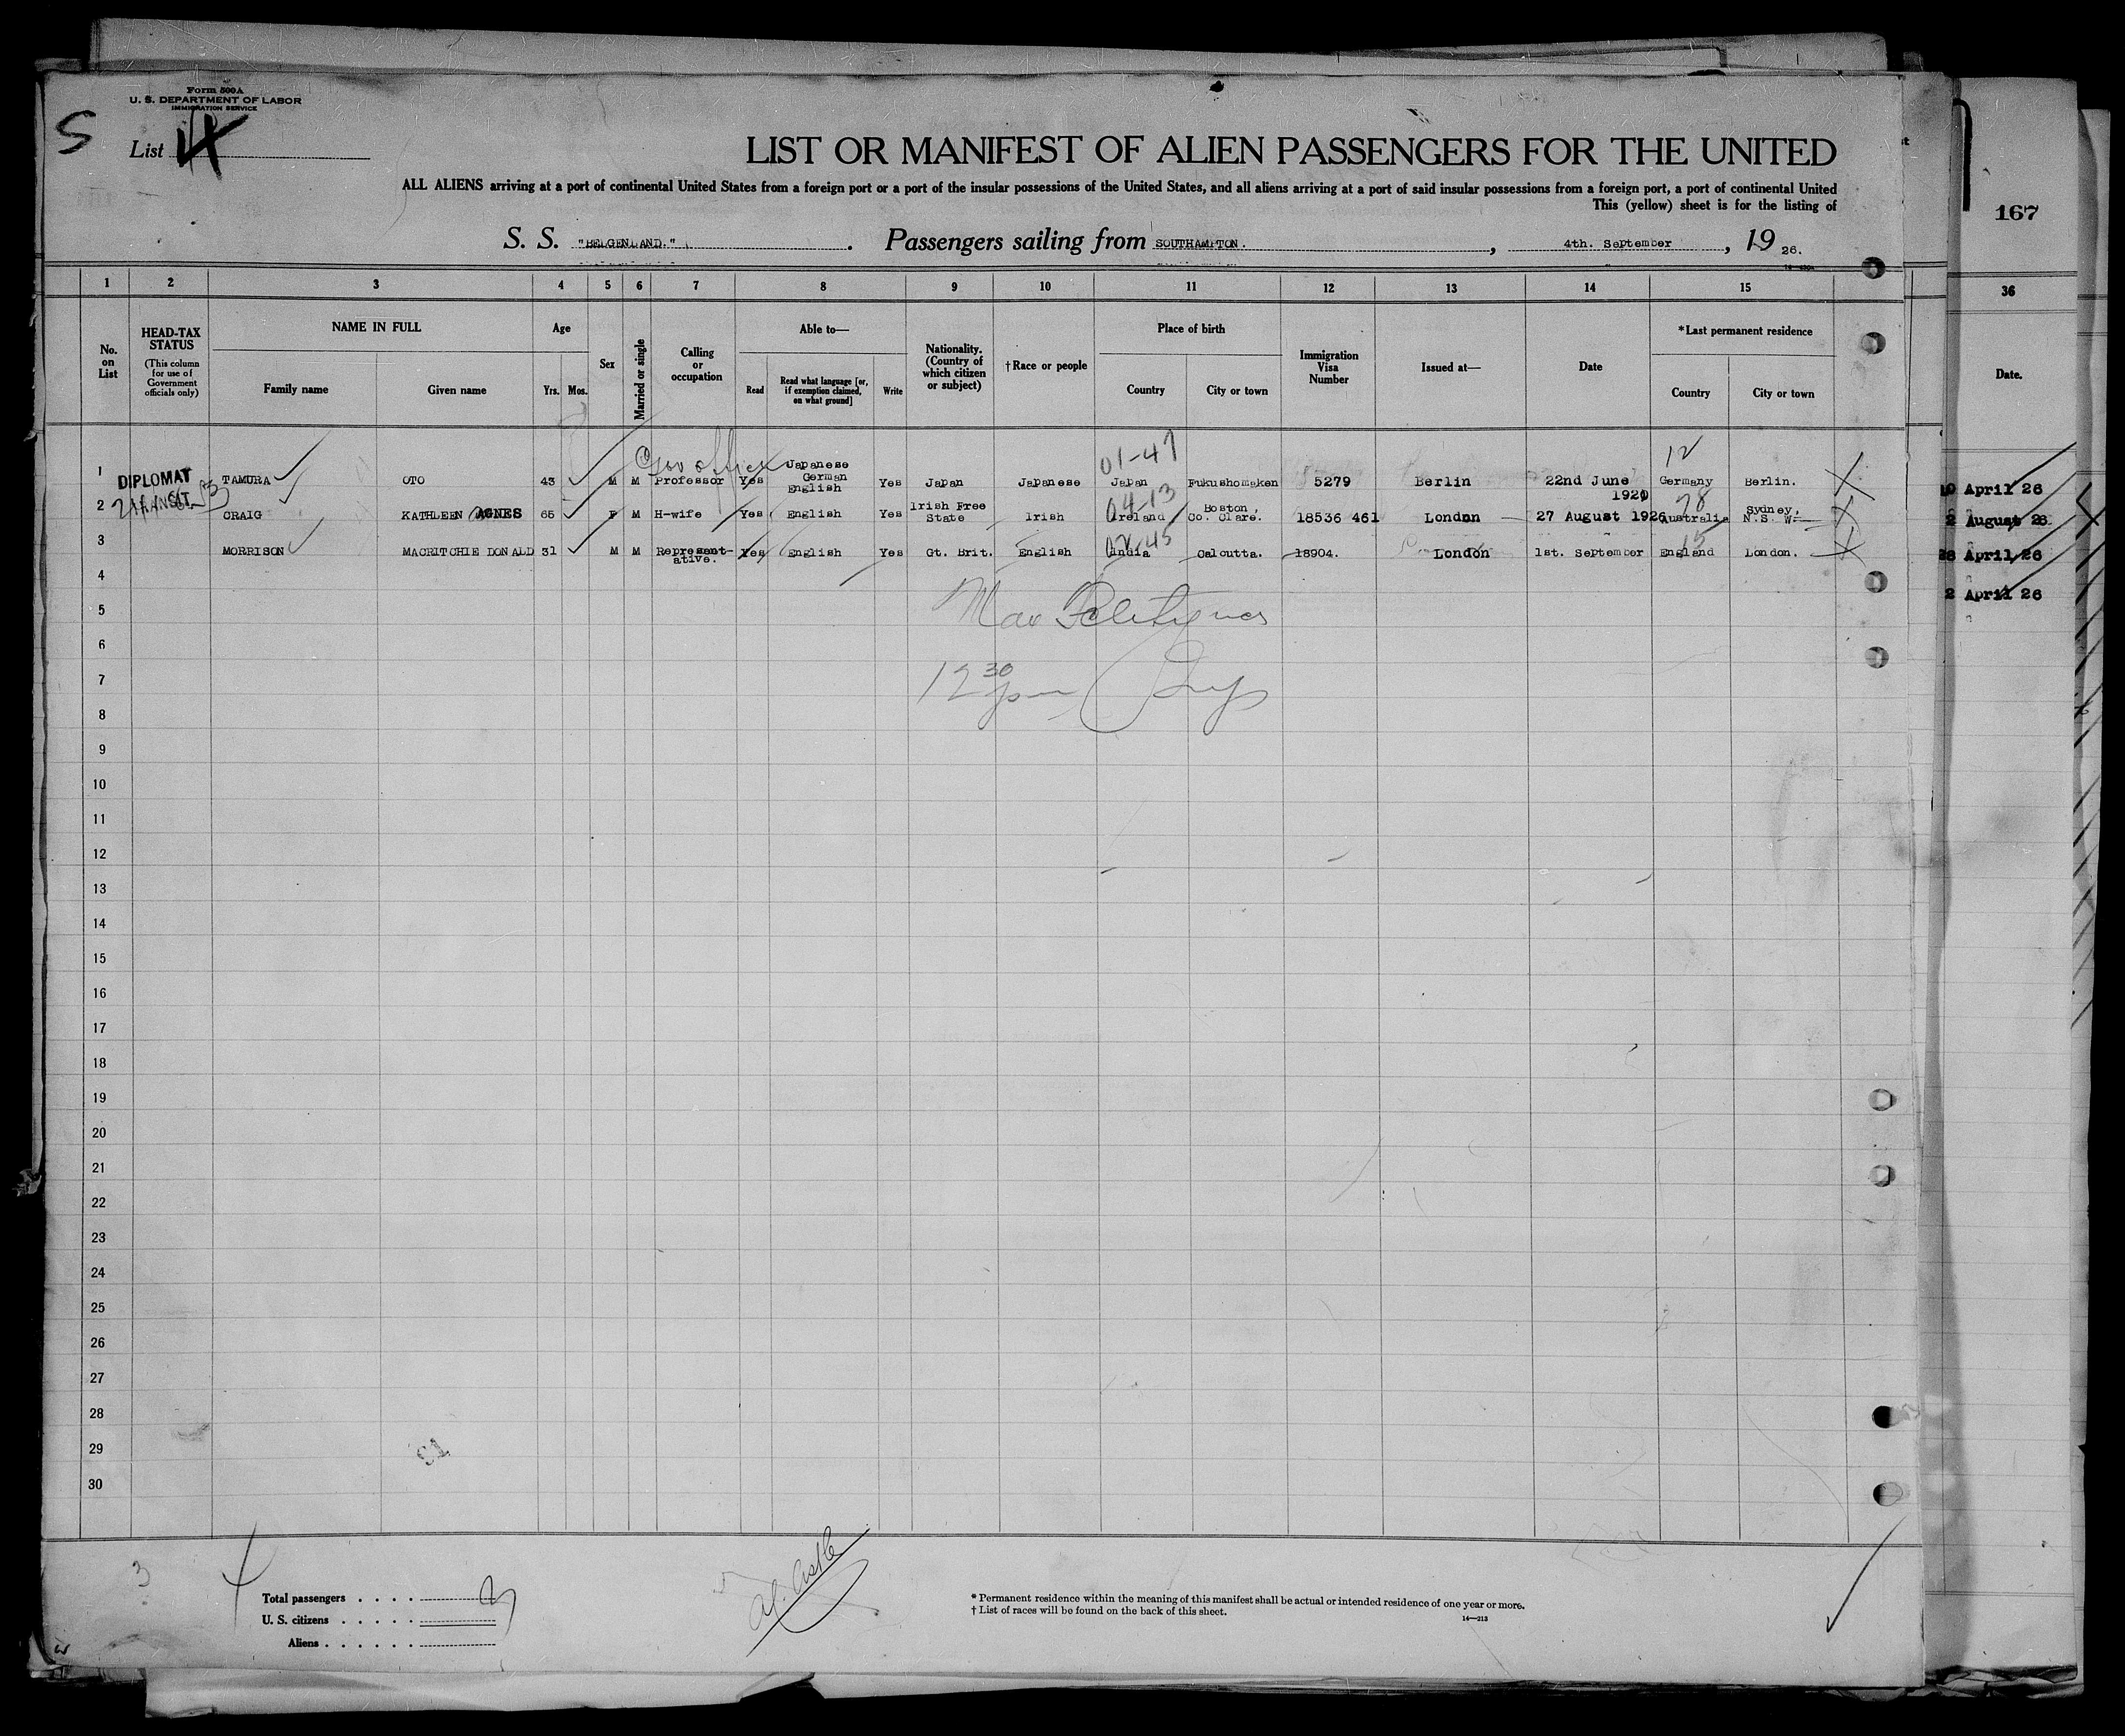 Form 500A
U. S. DEPARTMENT OF LABOR
IMMIGRATION SERVICE
S
List 4
LIST OR MANIFEST OF ALIEN PASSENGERS FOR THE UNITED
ALL ALIENS arriving at a port of continental United States from a foreign port or a port of the insular possessions of the United States, and all aliens arriving at a port of said insular possessions from a foreign port, a port of continental United
This (yellow) sheet is for the listing of
S. S. "BELGENLAND." . Passengers sailing from SOUTHAMPTON. , 4th. September , 19 26.
167
1 2 3 4 5 6 7 8 9 10 11 12 13 14 15
36
No. on List
HEAD-TAX STATUS
(This column for use of Government officials only)
NAME IN FULL
Family name Given name
Age
Yrs. Mos.
Sex
Married or single
Calling or occupation
Able to—
Read
Read what language [or, if exemption claimed, on what ground]
Write
Nationality. (Country of which citizen or subject)
†Race or people
Place of birth
Country City or town
Immigration Visa Number
Issued at—
Date
*Last permanent residence
Country City or town
Date.
Gov office 01-47 12
1 DIPLOMAT TAMURA OTO 43 M M Professor Yes Japanese German English Yes Japan Japanese Japan Fukushomaken 5279 Berlin 22nd June 1920 Germany Berlin.
TRANSIT.
04-13 28
2 CRAIG KATHLEEN AGNES 65 F M H-wife Yes English Yes Irish Free State Irish Ireland Boston, Co. Clare. 18536 461 London 27 August 1926 Australia Sydney, N.S. W.
02-45 15
3 MORRISON MACRITCHIE DONALD 31 M M Represent-ative. Yes English Yes Gt. Brit. English India Calcutta. 18904. London 1st. September England London.
April 26
2 August 26
28 April 26
2 April 26
4
5
6
12 30 pm
7
8
9
10
11
12
13
14
15
16
17
18
19
20
21
22
23
24
25
26
27
28
29
30
3
Total passengers . . . . 3
U. S. citizens . . . . .
Aliens . . . . . .
* Permanent residence within the meaning of this manifest shall be actual or intended residence of one year or more.
† List of races will be found on the back of this sheet.
14—213